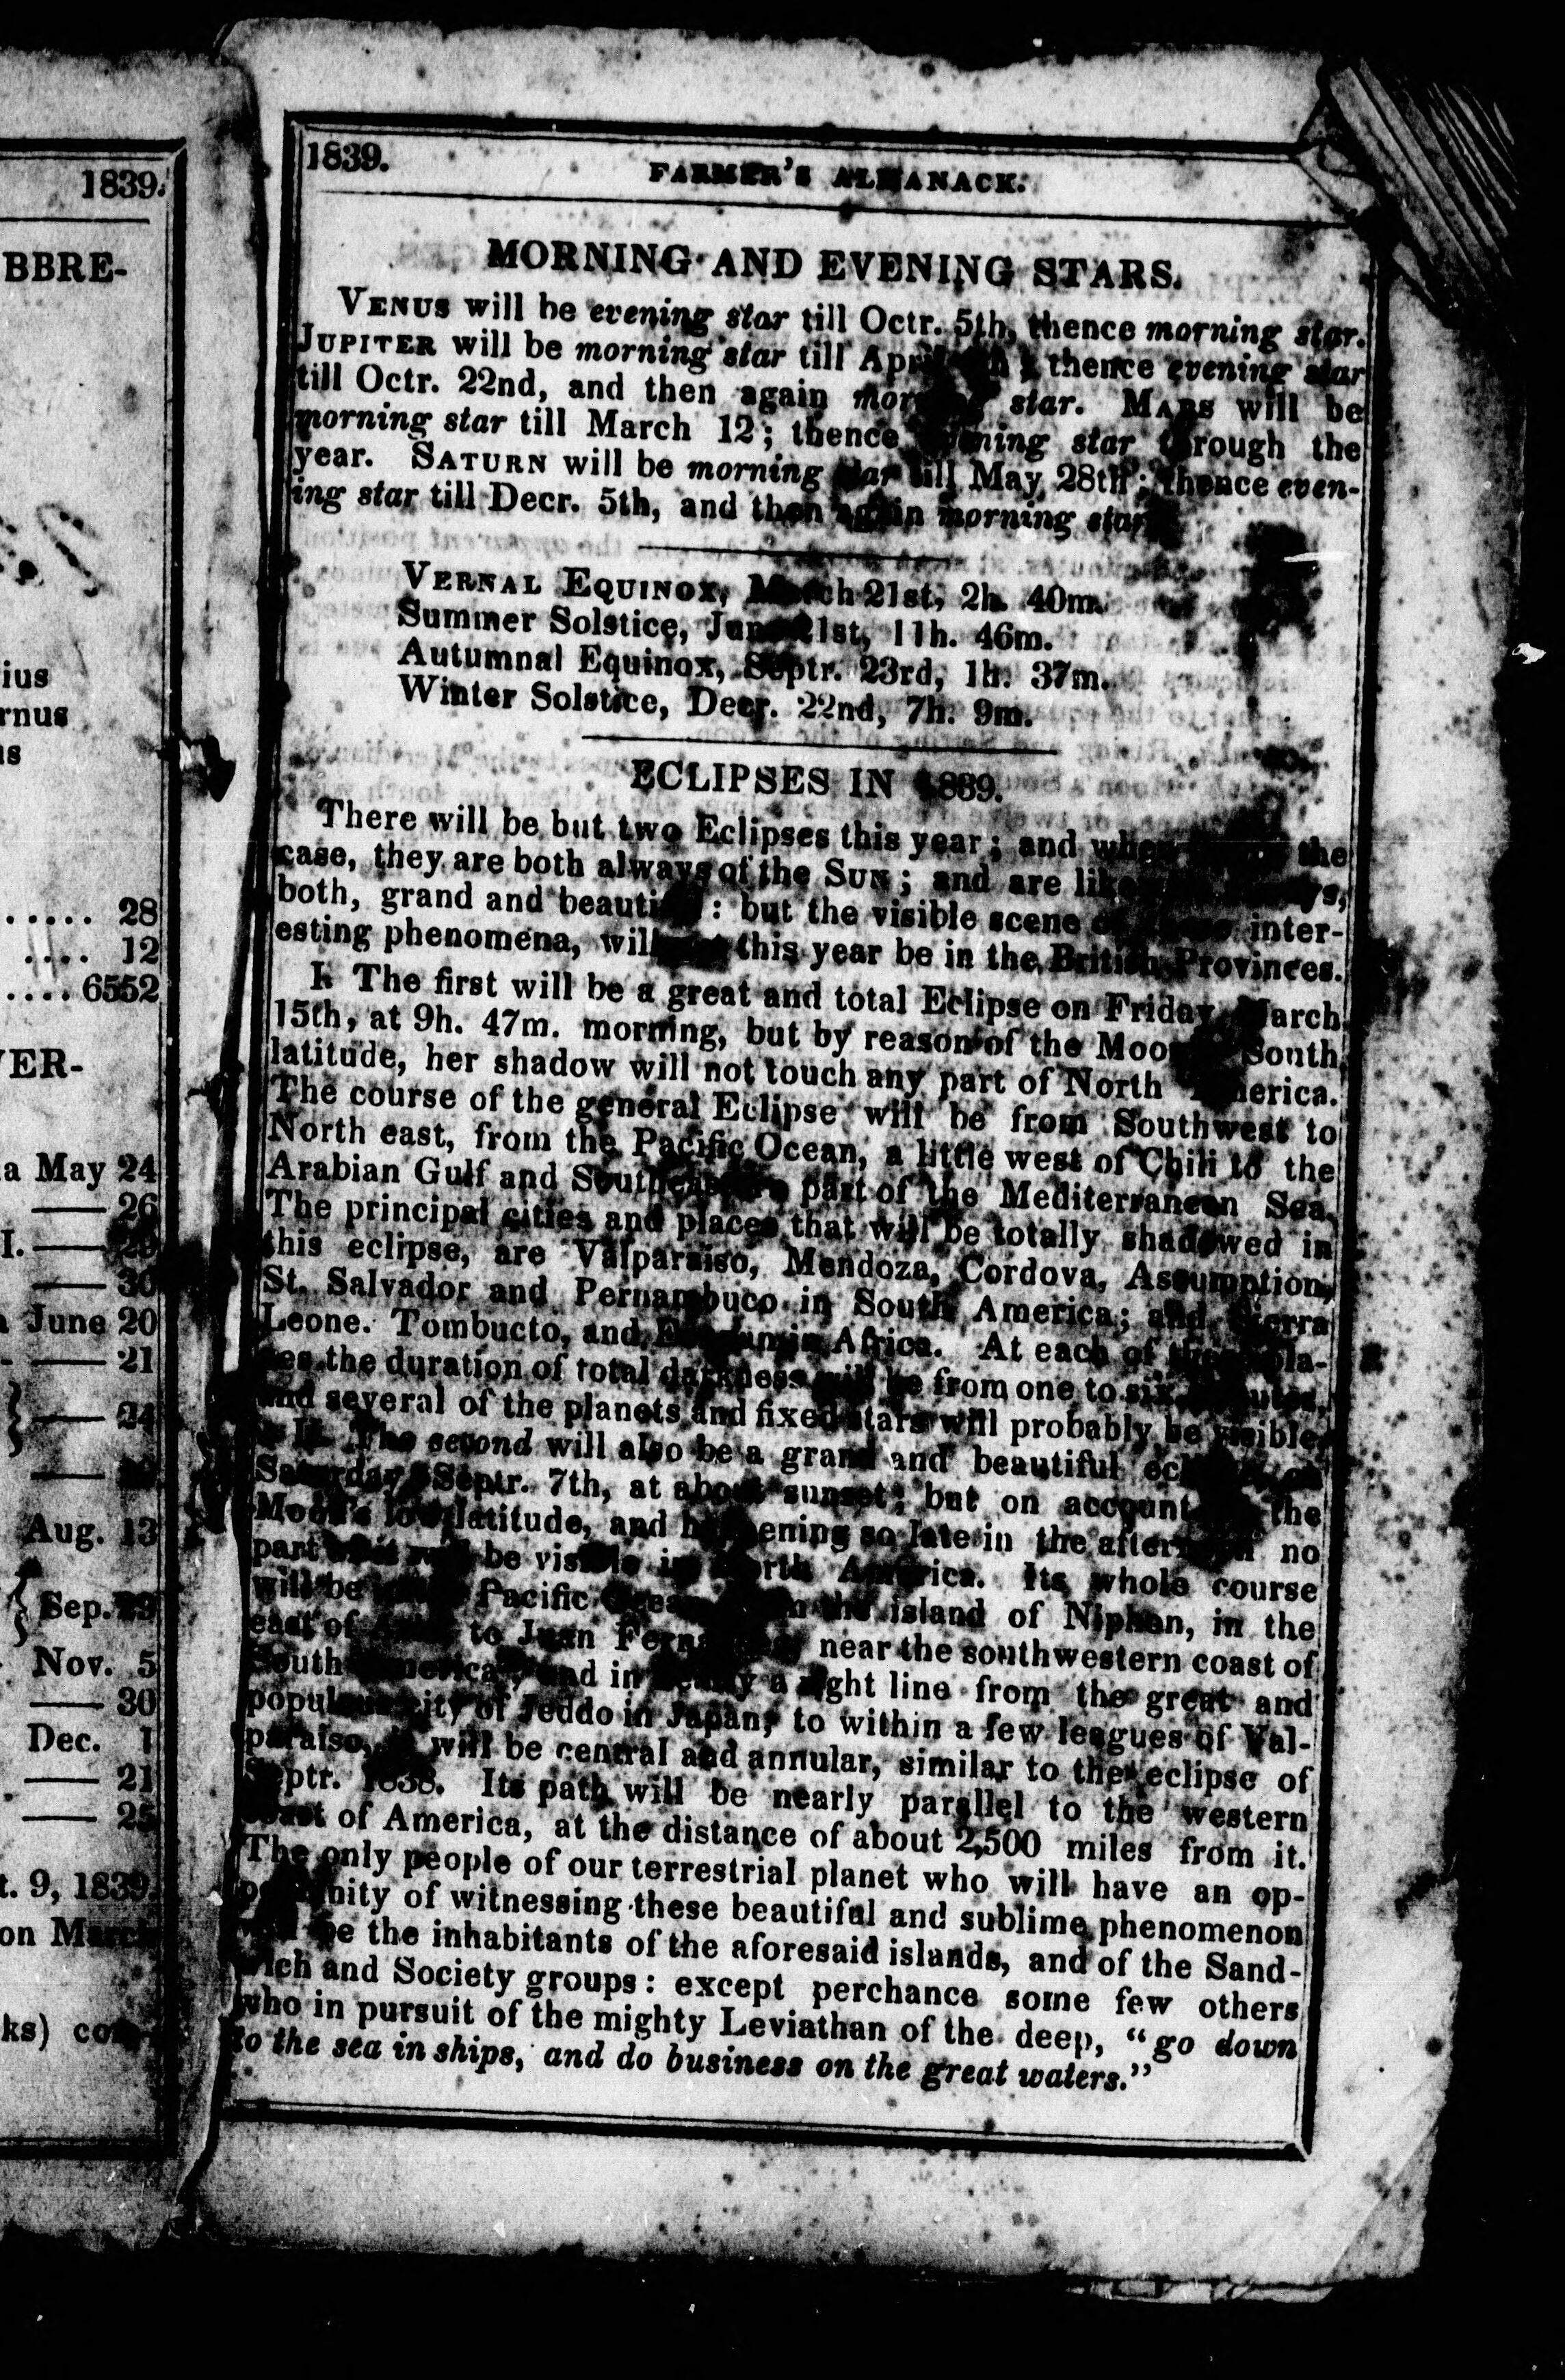 1839.
BBRE-
ius
rnus
s
..... 28
.... 12
.... 6552
ER-
a May 24
— 26
I. —
— 30
June 20
— 21
— 24
—
Aug. 13
Sep. 29
Nov. 5
— 30
Dec. 1
— 21
— 25
t. 9, 1839.
on March
ks) com-
1839. FARMER'S ALMANACK.
MORNING AND EVENING STARS.
VENUS will be evening star till Octr. 5th, thence morning star.
JUPITER will be morning star till April thence evening star
till Octr. 22nd, and then again morning star. MARS will be
morning star till March 12; thence evening star through the
year. SATURN will be morning star till May 28th; thence even-
ing star till Decr. 5th, and then again morning star
VERNAL EQUINOX, March 21st, 2h. 40m.
Summer Solstice, June 21st, 11h. 46m.
Autumnal Equinox, Septr. 23rd, 1h. 37m.
Winter Solstice, Decr. 22nd, 7h. 9m.
ECLIPSES IN 1839.
There will be but two Eclipses this year; and when the
case, they are both always of the SUN; and are
both, grand and beautiful: but the visible scene of inter-
esting phenomena, will this year be in the British Provinces.
I. The first will be a great and total Eclipse on Friday March
15th, at 9h. 47m. morning, but by reason of the Moon's South
latitude, her shadow will not touch any part of North America.
The course of the general Eclipse will be from Southwest to
North east, from the Pacific Ocean, a little west of Chili to the
Arabian Gulf and Southeastern part of the Mediterranean Sea.
The principal cities and places that will be totally shadowed in
this eclipse, are Valparaiso, Mendoza, Cordova, Assumption,
St. Salvador and Pernambuco in South America; and Sierra
Leone. Tombucto, and in Africa. At each of these pla-
ces the duration of total darkness will be from one to six minutes,
and several of the planets and fixed stars will probably be visible.
II. The second will also be a grand and beautiful eclipse, on
Saturday Septr. 7th, at about sunset; but on account of the
Moon's low latitude, and happening so late in the afternoon no
part of it will be visible in North America. Its whole course
will be Pacific Ocean from the island of Niphon, in the
east of Asia to Juan Fernandez near the southwestern coast of
South America, and in nearly a right line from the great and
populous city of Jeddo in Japan, to within a few leagues of Val-
paraiso, it will be central and annular, similar to the eclipse of
Septr. 1838. Its path will be nearly parallel to the western
coast of America, at the distance of about 2,500 miles from it.
The only people of our terrestrial planet who will have an op-
portunity of witnessing these beautiful and sublime phenomenon
will be the inhabitants of the aforesaid islands, and of the Sand-
wich and Society groups: except perchance some few others
who in pursuit of the mighty Leviathan of the deep, "go down
to the sea in ships, and do business on the great waters."